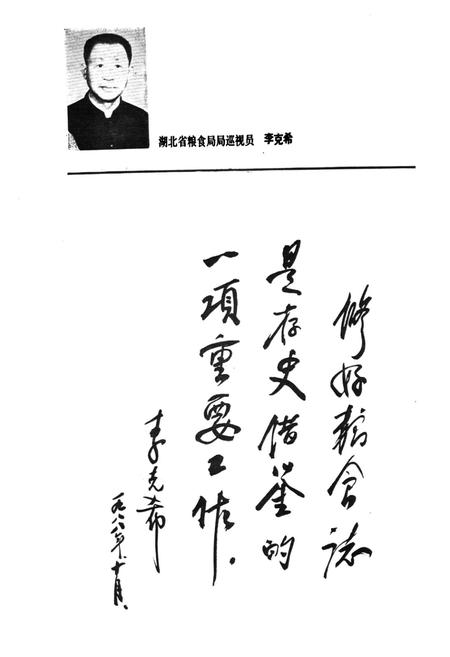 湖北省粮食局局巡视员 李克希
修好粮食志
是存史借鉴的
一项重要工作。
李克希
一九八八年十月.